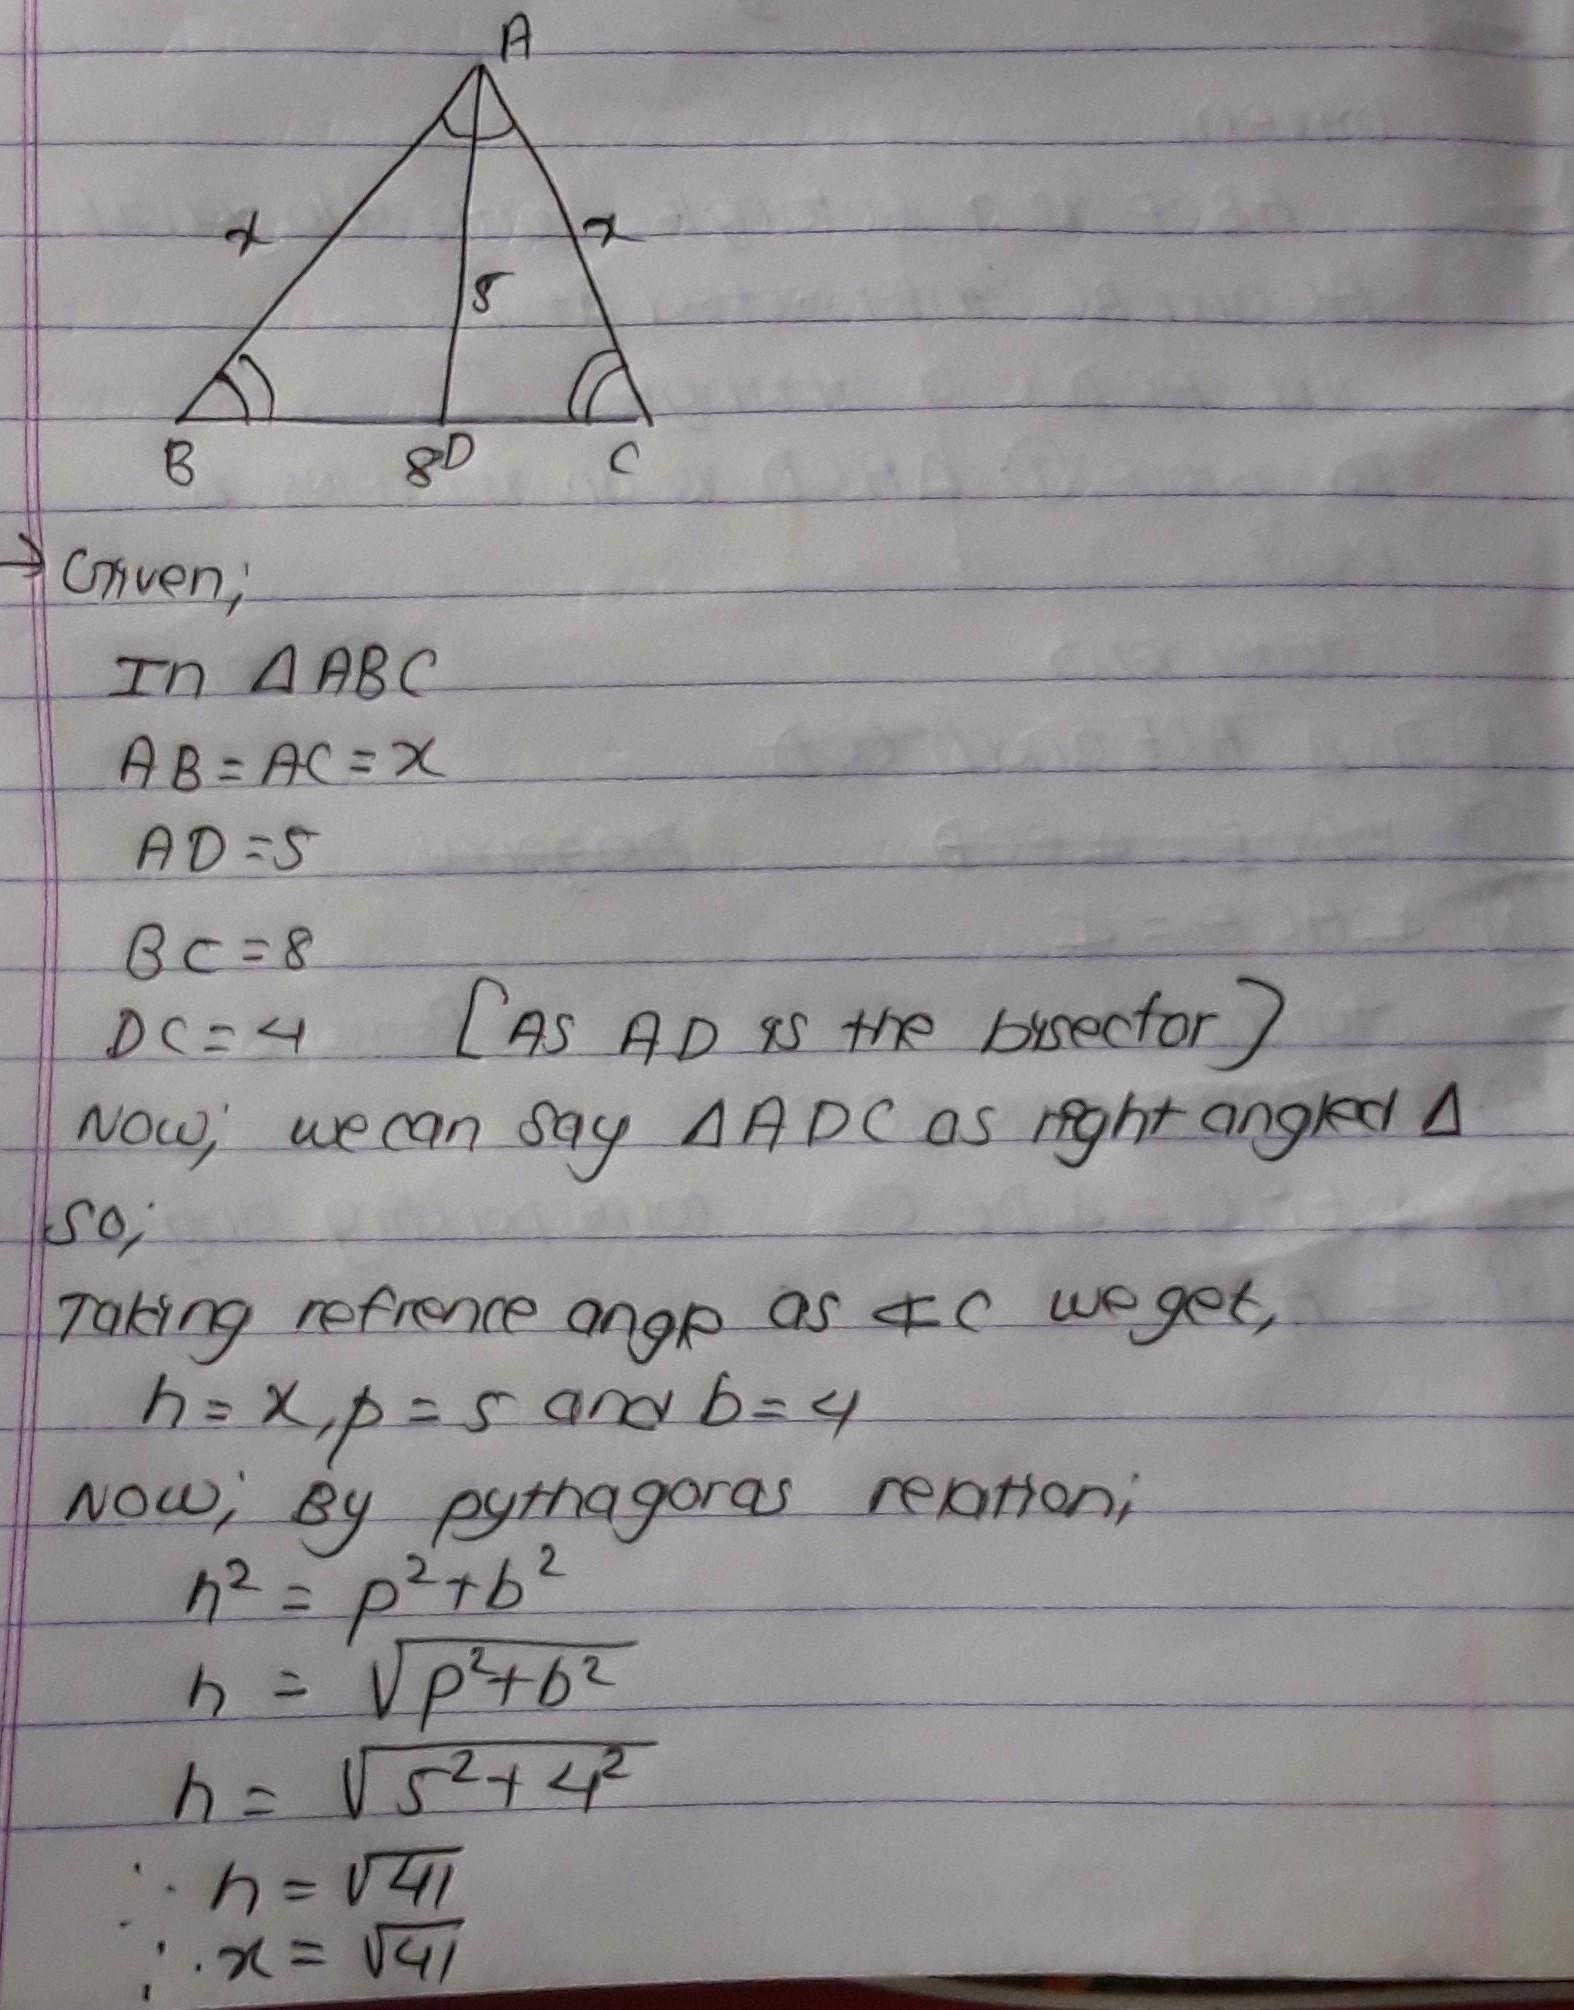 A
x x
5
B 8 D C
→ Given;
In ΔABC
AB = AC = x
AD = 5
BC = 8
DC = 4 [As AD is the bisector]
Now; we can say ΔADC as right angled Δ
so;
Taking refrence angle as ∢C we get,
h = x, p = 5 and b = 4
Now; By pythagoras relation;
h² = p² + b²
h = √p²+b²
h = √5²+4²
∴ h = √41
∴ x = √41